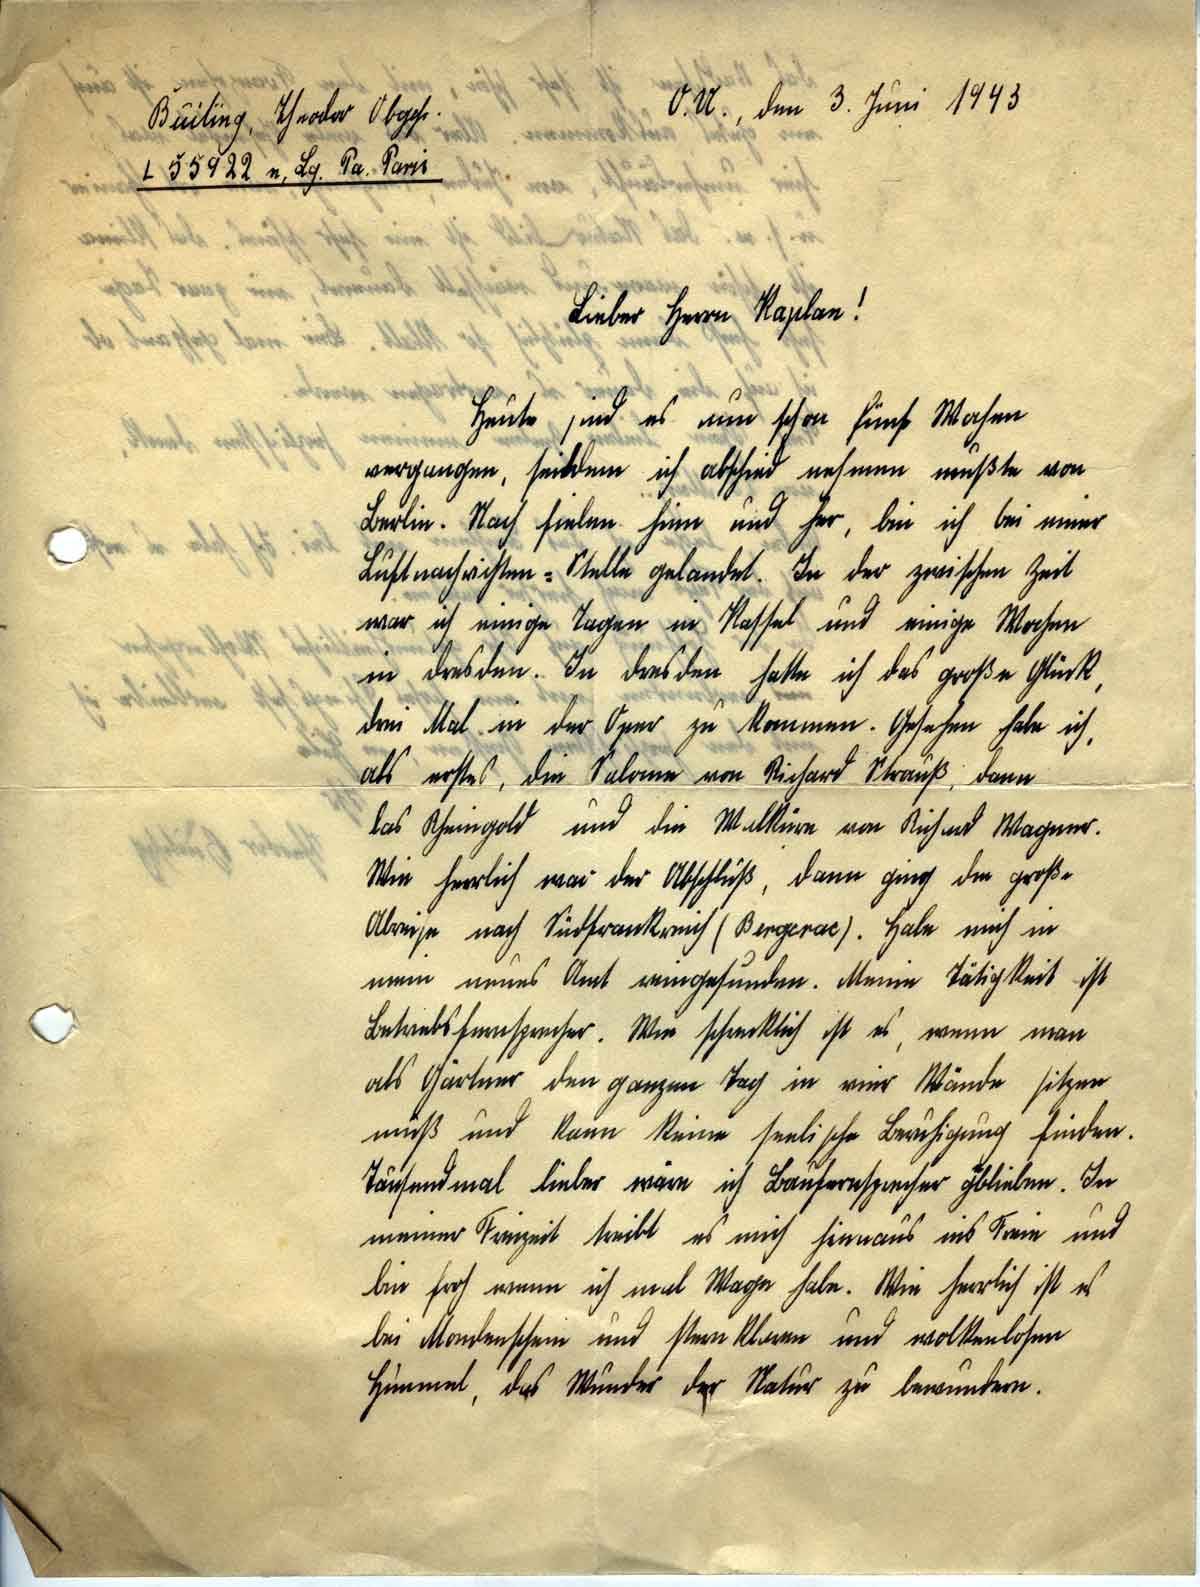 Büiling, Theodor Obgefr.
L 55922 n, Lg. Pa. Paris
O.U., den 3. Juni 1943
Lieber Herrn Kaplan!
Heute sind es nun schon fünf Wochen
vergangen, seitdem ich abschied nehmen mußte von
Berlin. Nach fielen hinn und her, bin ich bei einer
Luftnachrichten=Stelle gelandet. In der zwischen Zeit
war ich einige Tagen in Kassel und einige Wochen
in dresden. In dresden hatte ich das große Glück,
drei Mal in der Oper zu kommen. Gesehen habe ich,
als erstes, die Salome von Richard Strauß, dann
das Rheingold und die Walküre von Richard Wagner.
Wie herrlich war der Abschluß, dann ging die große
Abreise nach Südfrankreich (Bergerac). Habe mich in
mein neues Amt reingefunden. Meine Tätigkeit ist
Betriebsfernsprecher. Wie schrecklich ist es, wenn man
als Gärtner den ganzen Tag in vier Wände sitzen
muß und kann keine seelische Beruhigung finden.
Tausendmal lieber wäre ich Baufernsprecher geblieben. In
meiner Freizeit treibt es mich hinnaus ins Freie und
bin froh wenn ich mal Wage habe. Wie herrlich ist es
bei Mondenschein und sternklaren und wolkenlosen
Himmel, das Wunder der Natur zu bewundern.